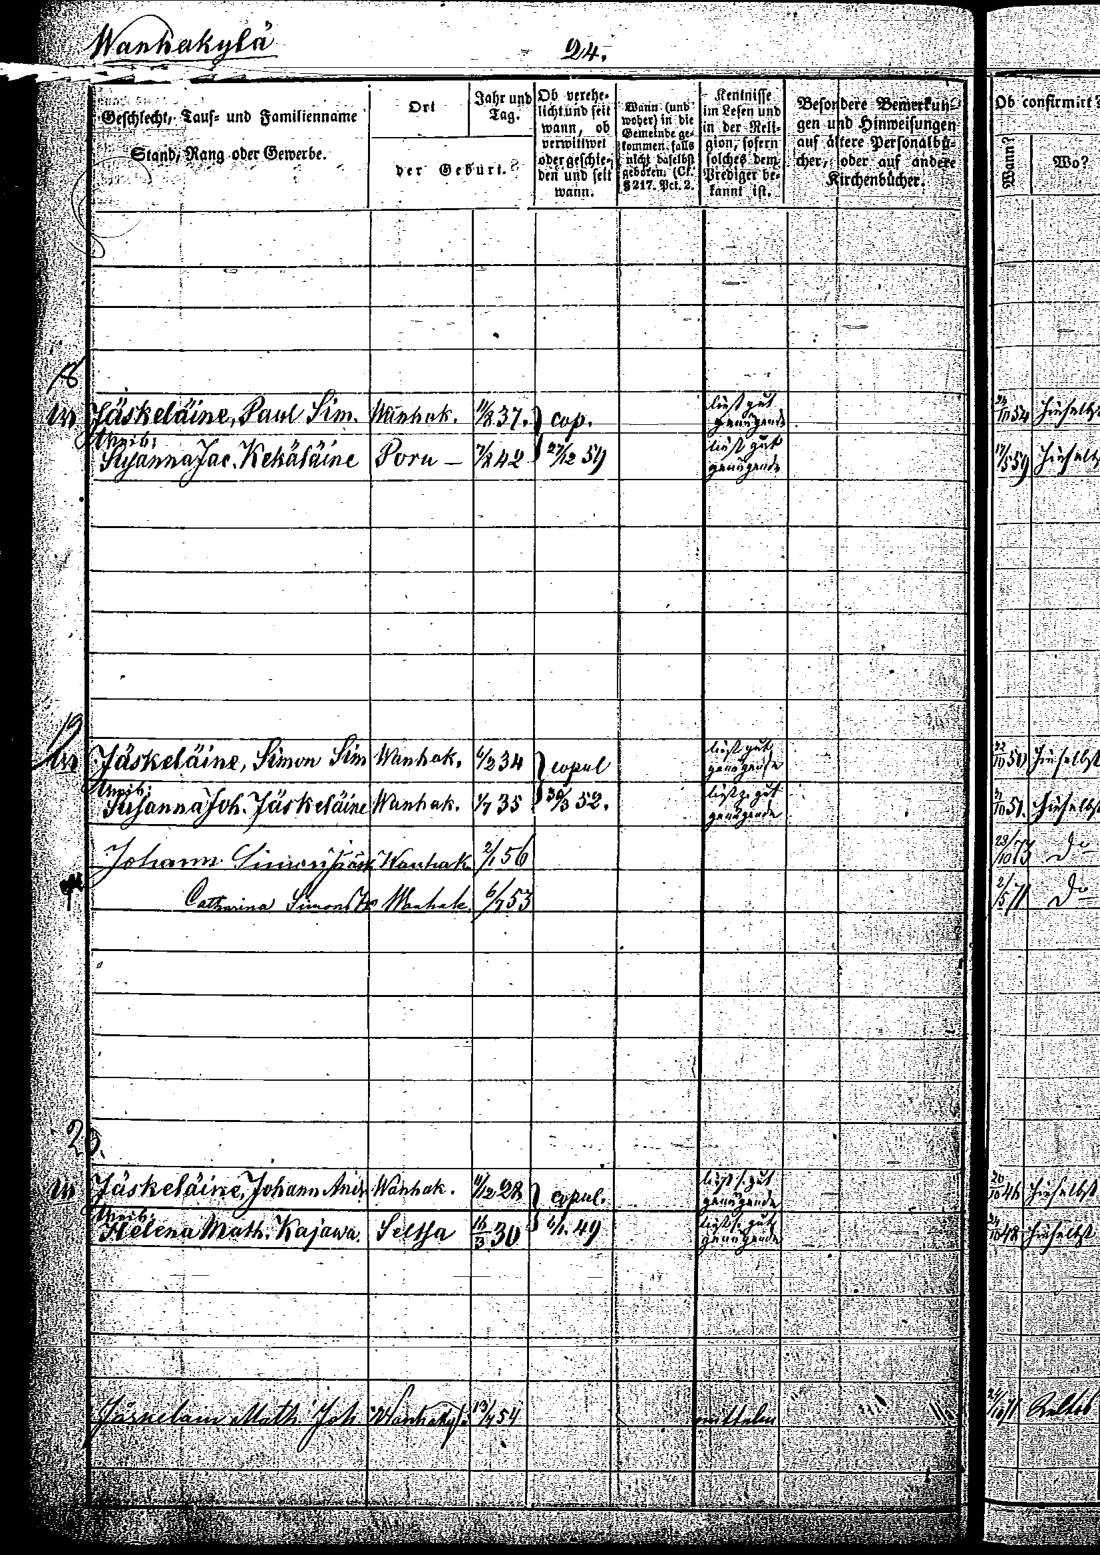 Wanhakylä 24.
Geschlecht, Tauf- und Familienname
Stand, Rang oder Gewerbe.
Ort
der Geburt.
Jahr und
Tag.
Ob verehe-
licht und seit
wann, ob
verwittwet
oder geschie-
den und seit
wann.
Wann (und
woher) in die
Gemeinde ge-
kommen, falls
nicht daselbst
geboren. (Cf.
§ 217. Pct. 2.
Kentnisse
im Lesen und
in der Reli-
gion, sofern
solches dem
Prediger be-
kannt ist.
Besondere Bemerkun-
gen und Hinweisungen
auf ältere Personalbü-
cher, oder auf andere
Kirchenbücher.
Ob confirmirt?
Wann?
Wo?
18
Jäskeläine, Paul Sim. Wanhak. 37. cop. liest gut genügende 54 hieselbst
Weib:
Susanna Jac. Kekäläine Poru — 42 27/12 59 liest gut genügende 59 hieselbst
19
Jäskeläine, Simon Sim Wanhak. 6/2 34 copul liest gut genügende 50 hieselbst
Weib:
Susanna Joh. Jäskeläine Wanhak. 1/7 35 30/3 52. liest z. gut genügende 51 hieselbst
Johann Simon Jääsk Wanhak 2/1 56 23/10 73 do
Catharina Simons Wanhak. 6/7 53 2/5 71 do
20.
Jäskeläine, Johann Andr Wanhak. 28 copul. liest s. gut genügende 20/10 46 hieselbst
Weib:
Helena Math. Kajawa. Seltsa 16/3 30 6/1. 49 liest s. gut genügende 48 hieselbst
Jäskelain Math Joh Wanhakyl. 13/7 54 mittelm 71